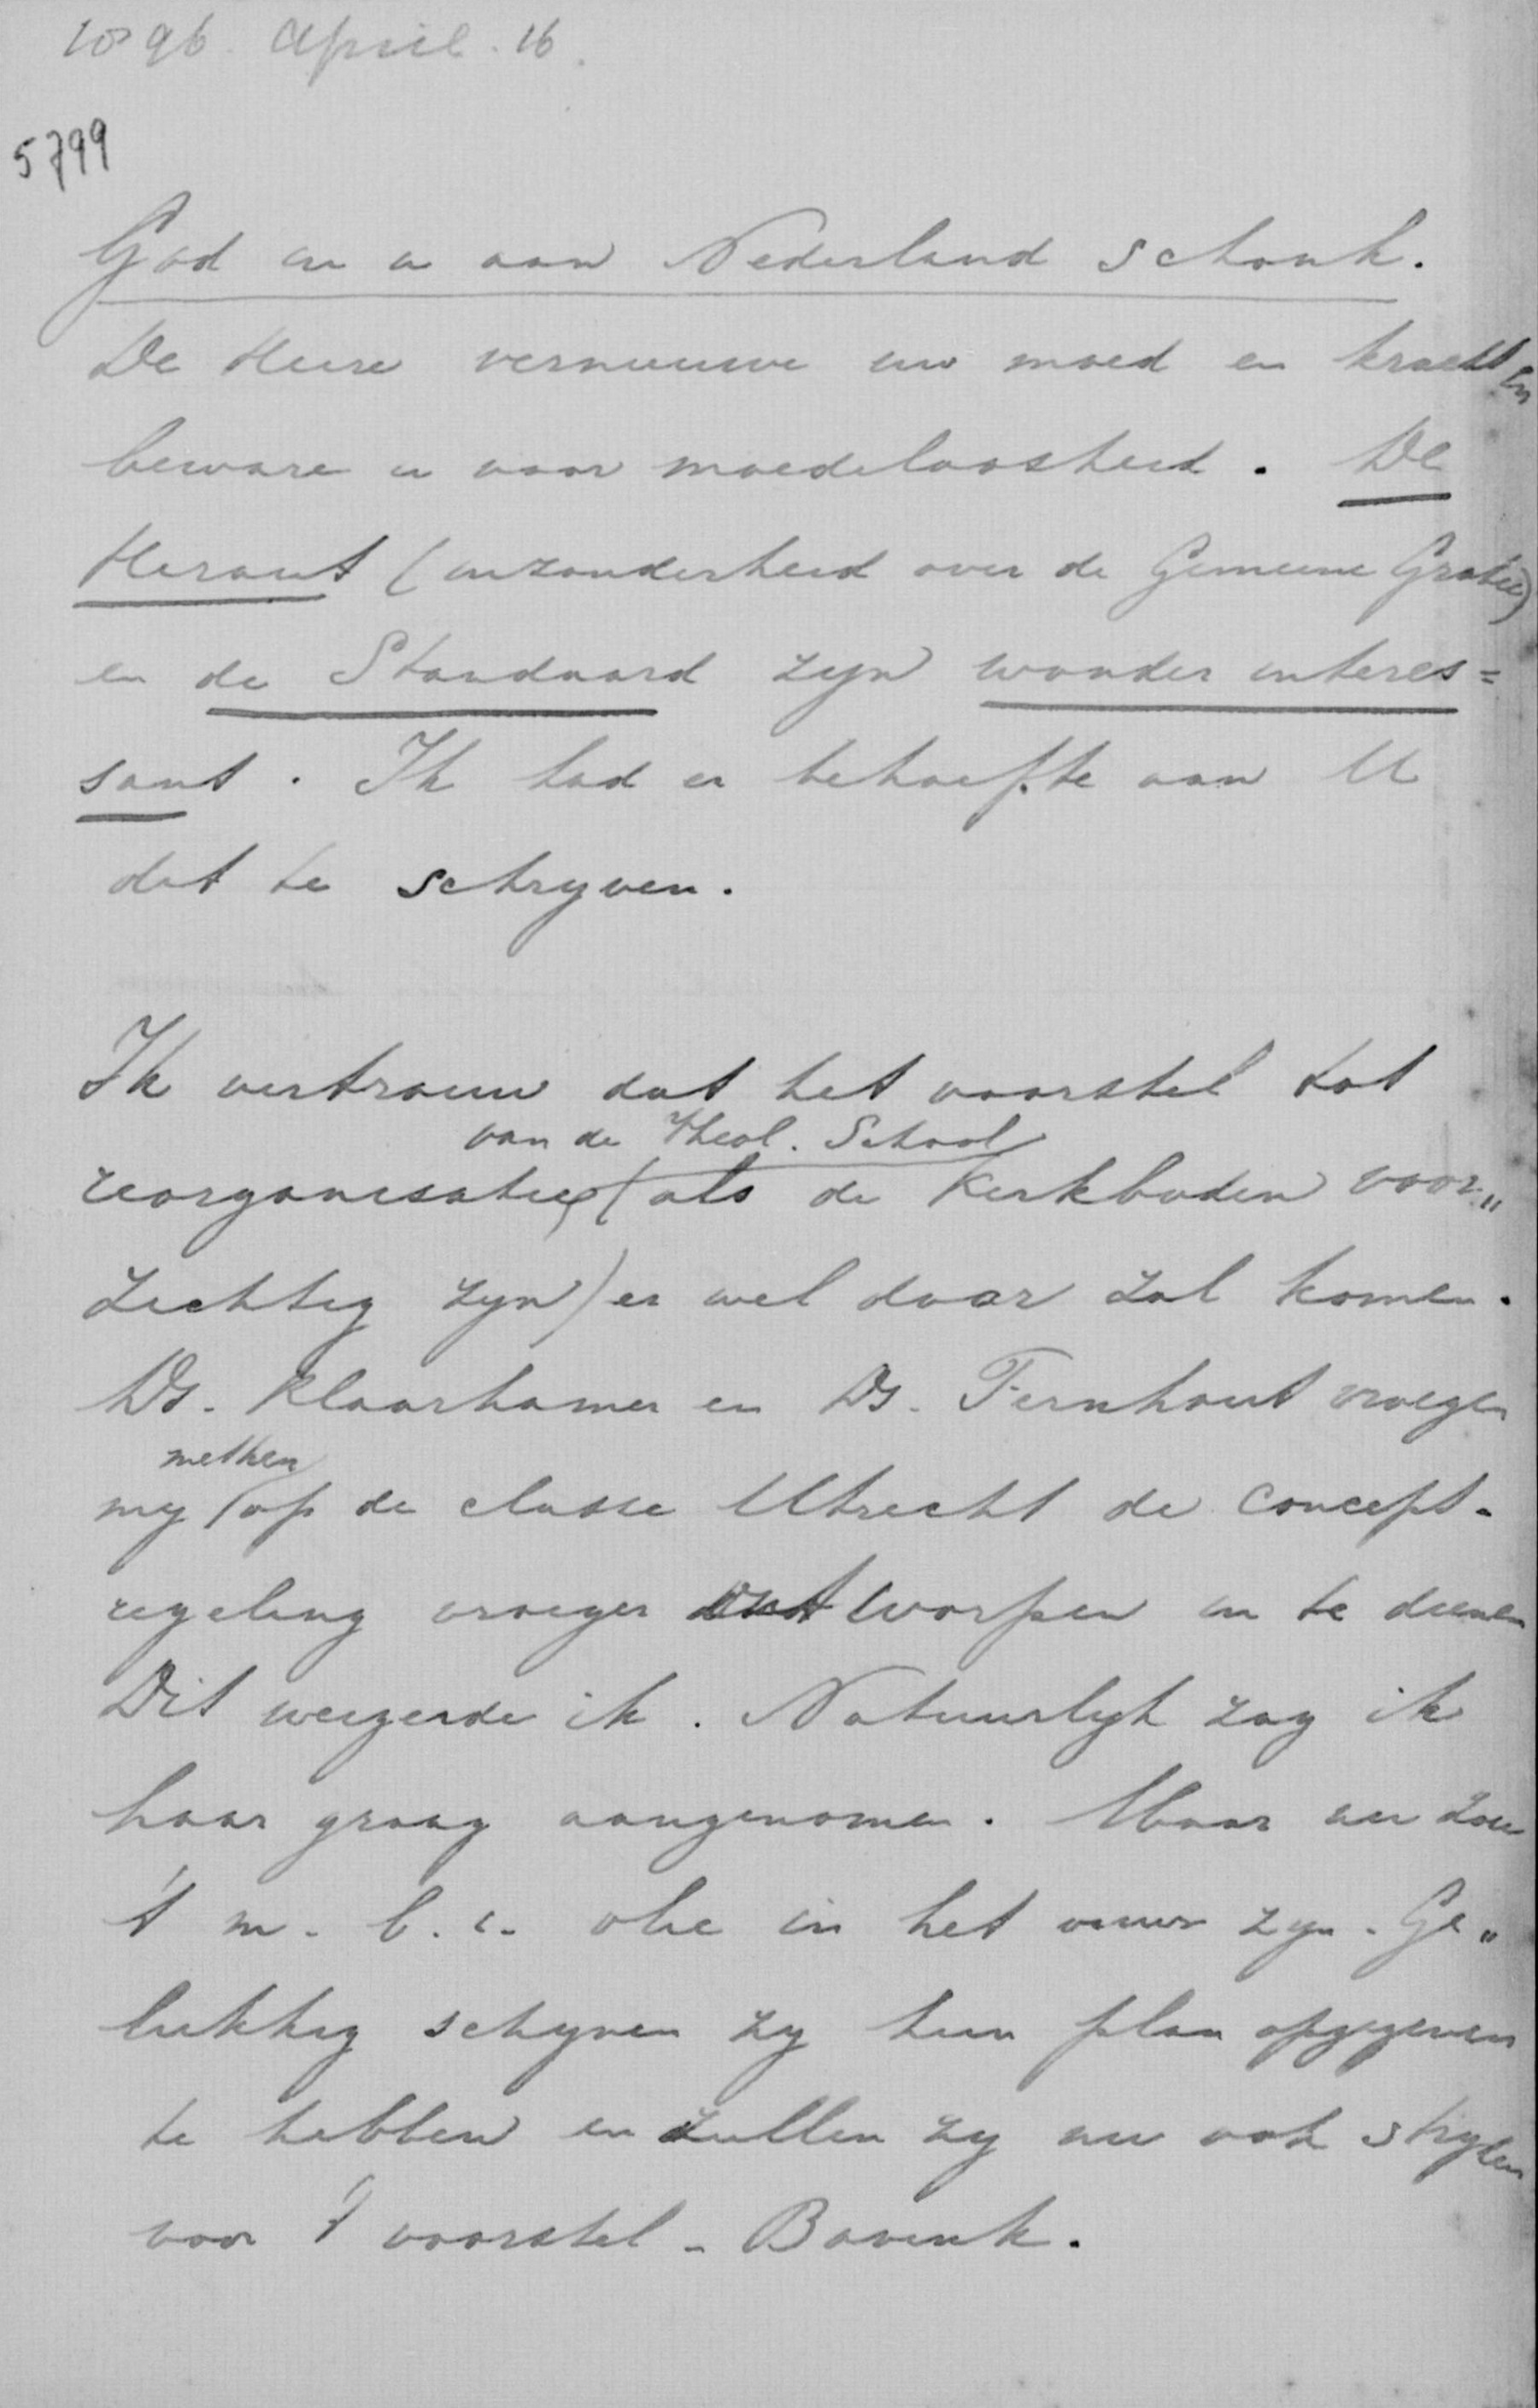 1896. April. 16.
5799
God in u aan Nederland schonk.
De Heere vernieuwe uw moed en kracht en
beware u voor moedeloosheid. De
Heraut (inzonderheid over de Gemeene Gratie)
en de Standaard zyn wonder interes=
sant. Ik had er behoefte aan U
dat te schryven.
Ik vertrouw dat het voorstel tot
van de Theol. School
reorganisatie (als de Kerkboden voor„
zichtig zyn) er wel door zal komen.
Ds. Klaarhamer en Ds. Fernhout vroegen
met hen
my op de classe Utrecht de concept-
regeling vroeger ontworpen in te dienen
Dit weigerde ik. Natuurlyk zag ik
haar graag aangenomen. Maar nu zou
't m. b. i. olie in het vuur zyn. Ge„
lukkig schynen zy hun plan opgegeven
te hebben en zullen zy nu ook stryden
voor 't voorstel-Bavinck.